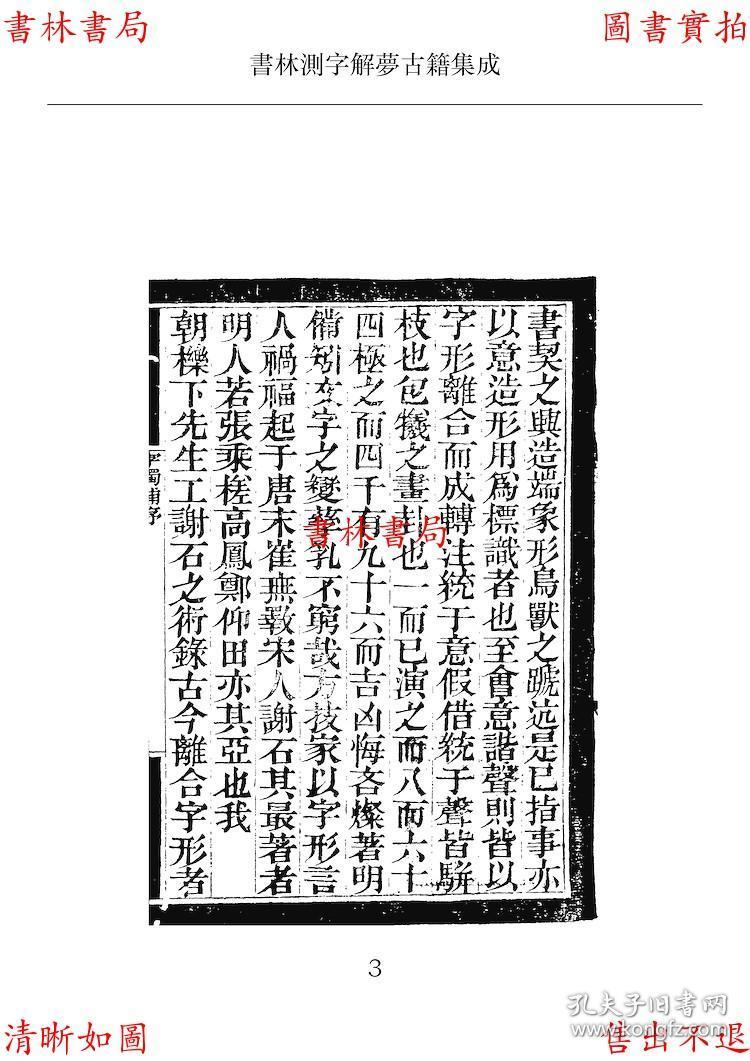 書林書局
圖書實拍
書林測字解夢古籍集成
書契之興造端象形鳥獸之蹏迒是已指事亦
以意造形用為標識者也至會意諧聲則皆以
字形離合而成轉注統于意假借統于聲皆駢
枝也包犧之畫卦也一而已演之而八而六十
四極之而四千有九十六而吉凶悔吝燦著明
備矧文字之變孳乳不窮哉方技家以字形言
人禍福起于唐末崔無斁宋人謝石其最著者
明人若張乘槎高鳳鄭仰田亦其亞也我
朝櫟下先生工謝石之術錄古今離合字形者
字觸補序
書林書局
3
清晰如圖
售出不退
孔夫子旧書网
www.kongfz.com